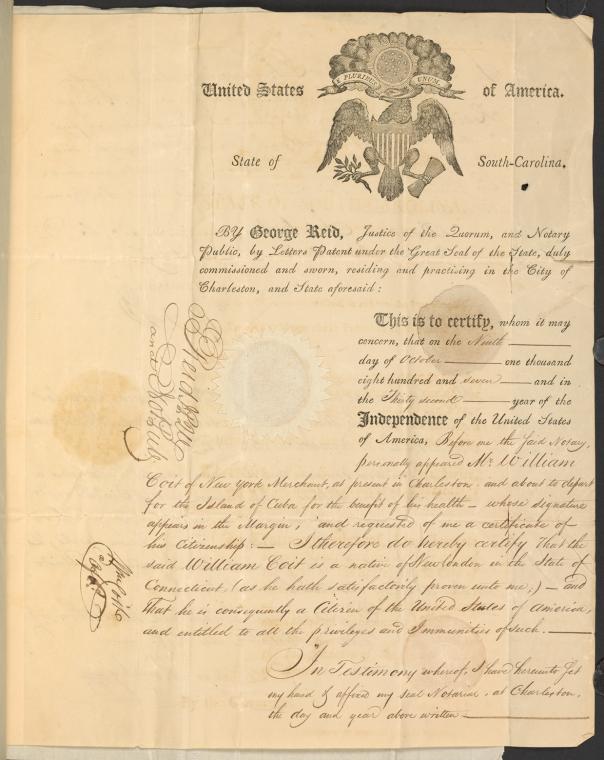 E PLURIBUS UNUM.
United States of America.
State of South-Carolina.
BY George Reid, Justice of the Quorum, and Notary
Public, by Letters Patent under the Great Seal of the State, duly
commissioned and sworn, residing and practising in the City of
Charleston, and State aforesaid:
This is to certify, whom it may
concern, that on the Ninth
day of October one thousand
eight hundred and seven and in
the Thirty second year of the
Independence of the United States
of America, Before me the said Notary,
personally appeared Mr. William
Coit of New York Merchant, at present in Charleston and about to depart
for the Island of Cuba for the benefit of his health – whose signature
appears in the Margin; and requested of me a certificate of
his Citizenship:– I therefore do hereby certify That the
said William Coit is a native of New London in the State of
Connecticut, (as he hath satisfactorily proven unto me,) – and
that he is consequently a Citizen of the United States of America,
and entitled to all the privileges and Immunities of such.
In Testimony whereof, I have hereunto set
my hand & affixed my seal Notarial, at Charleston,
the day and year above written